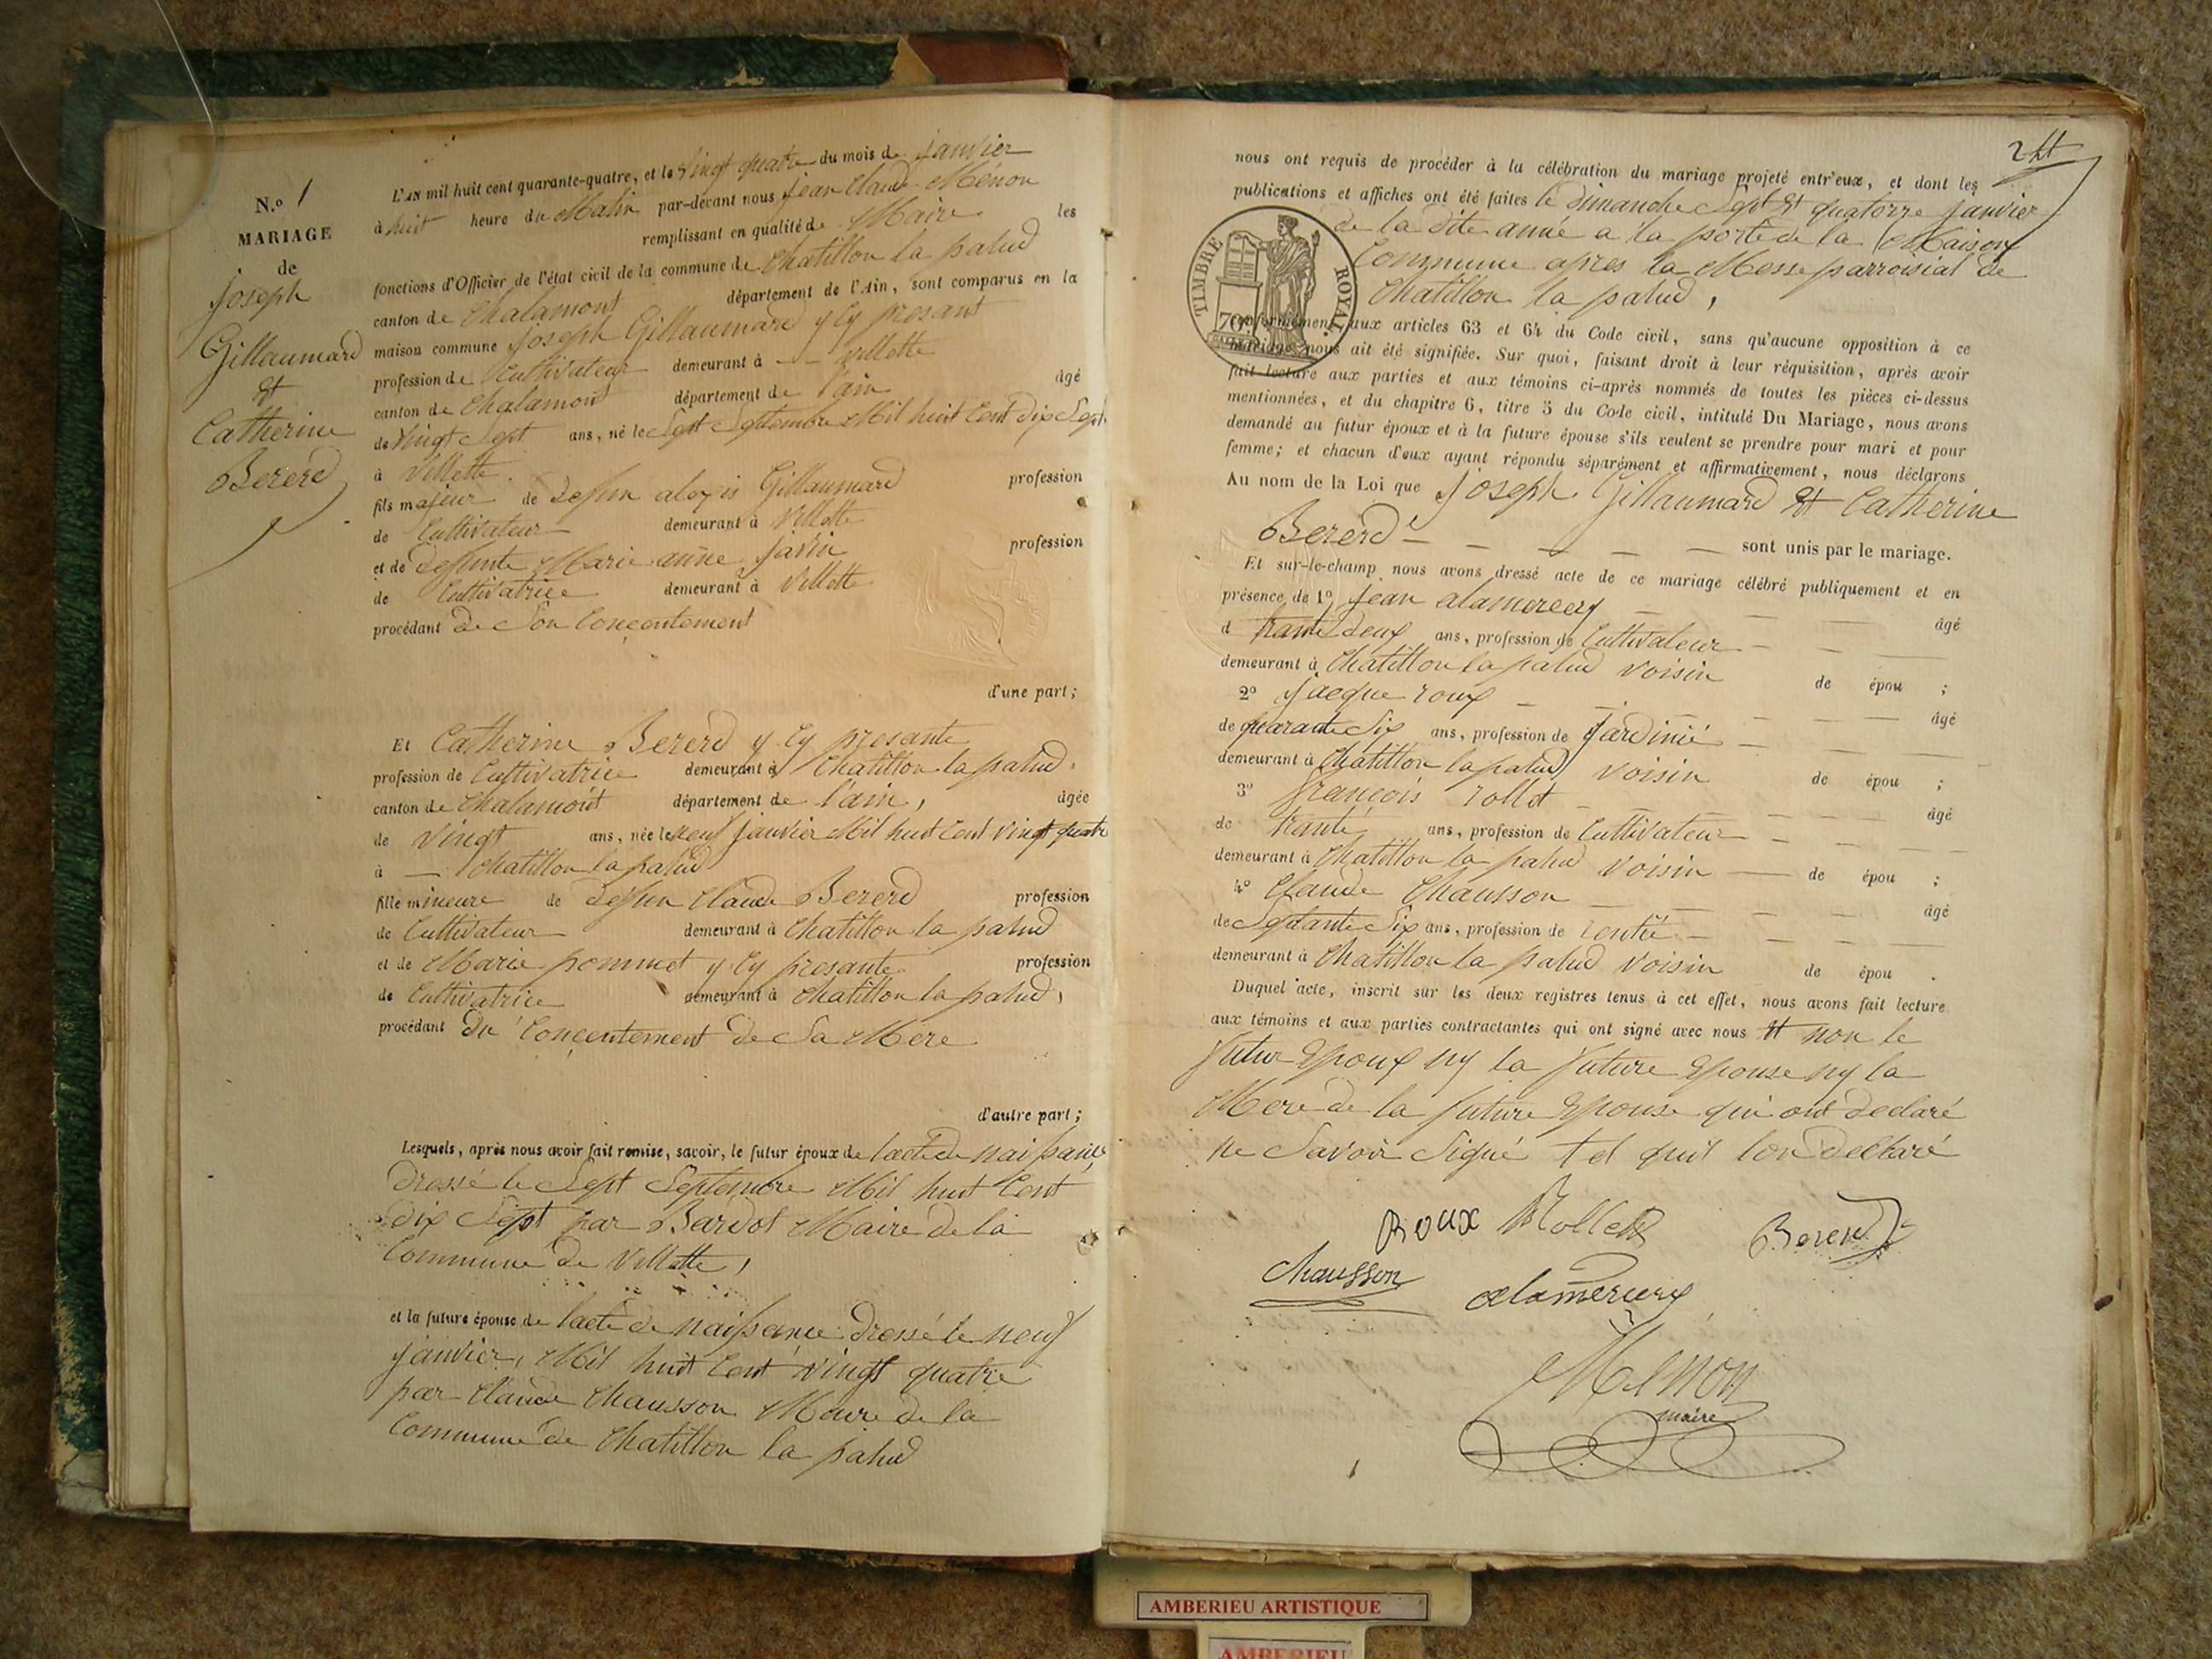 N.º 1
MARIAGE
de
Joseph
Gillaumard
et
Catherine
Bererd
L'AN mil huit cent quarante-quatre, et le vingt quatre du mois de janvier
à huit heure du Matin par-devant nous jean Claude Menon
remplissant en qualité de Maire les
fonctions d'Officier de l'état civil de la commune de Chatillon la palud
canton de Chalamont département de l'Ain, sont comparus en la
maison commune Joseph Gillaumard y Cy presant
profession de Cultivateur demeurant à - - villette
canton de Chalamont département de l'ain âgé
de vingt Sept ans, né le Sept Septembre Mil huit Cent dix Sept
à villette
fils majeur de defun alexis Gillaumard profession
de Cultivateur demeurant à villette
et de defunte Marie anne javin profession
de Cultivatrice demeurant à villette
procédant de Son Concentement
d'une part;
Et Catherine Bererd y Cy presante
profession de Cultivatrice demeurant à Chatillon la palud
canton de Chalamont département de l'ain, âgée
de vingt ans, née le neuf janvier Mil huit Cent vingt quatre
à — Chatillon la palud
fille mineure de defun Claude Bererd profession
de Cultivateur demeurant à Chatillon la palud
et de Marie pommet y Cy presante profession
de Cultivatrice demeurant à Chatillon la palud,
procédant du Concentement de Sa Mere
d'autre part;
Lesquels, après nous avoir fait remise, savoir, le futur époux de lacte de naissance
dressé le Sept Septembre Mil huit Cent
dix Sept par Bardot Maire de la
Commune de villette,
et la future épouse de lacte de naissance dressé le neuf
janvier, Mil huit Cent vingt quatre
par Claude Chausson Maire de la
Commune de Chatillon la palud
nous ont requis de procéder à la célébration du mariage projeté entr'eux, et dont les
publications et affiches ont été faites le dimanche Sept et quatorze janvier
de la dite année a la porte de la Maison
Commune apres la Messe parroisial de
Chatillon la palud,
TIMBRE ROYAL
70
conformément aux articles 63 et 64 du Code civil, sans qu'aucune opposition à ce
mariage nous ait été signifiée. Sur quoi, faisant droit à leur réquisition, après avoir
fait lecture aux parties et aux témoins ci-après nommés de toutes les pièces ci-dessus
mentionnées, et du chapitre 6, titre 5 du Code civil, intitulé Du Mariage, nous avons
demandé au futur époux et à la future épouse s'ils veulent se prendre pour mari et pour
femme; et chacun d'eux ayant répondu séparément et affirmativement, nous déclarons
Au nom de la Loi que Joseph Gillaumard et Catherine
Bererd - - - - - sont unis par le mariage.
Et sur-le-champ nous avons dressé acte de ce mariage célébré publiquement et en
présence de 1º jean alamercery âgé
d trante deux ans, profession de Cultivateur
demeurant à Chatillon la palud voisin de épou ;
2º jacque roux âgé
de quarante Six ans, profession de jardinié
demeurant à Chatillon la palud voisin de épou ;
3º françois rollet âgé
de trante ans, profession de Cultivateur
demeurant à Chatillon la palud voisin de épou ;
4º Claude Chausson âgé
de Septante Six ans, profession de rentié
demeurant à Chatillon la palud voisin de épou .
Duquel acte, inscrit sur les deux registres tenus à cet effet, nous avons fait lecture
aux témoins et aux parties contractantes qui ont signé avec nous et non le
futur Epoux ny la future Epouse ny la
Mere de la future Epouse qui ont declaré
ne Savoir Signé tel quil lon declaré
Roux Rollet Bererd
Chausson alamercery
Menon
maire
AMBERIEU ARTISTIQUE
AMBERIEU